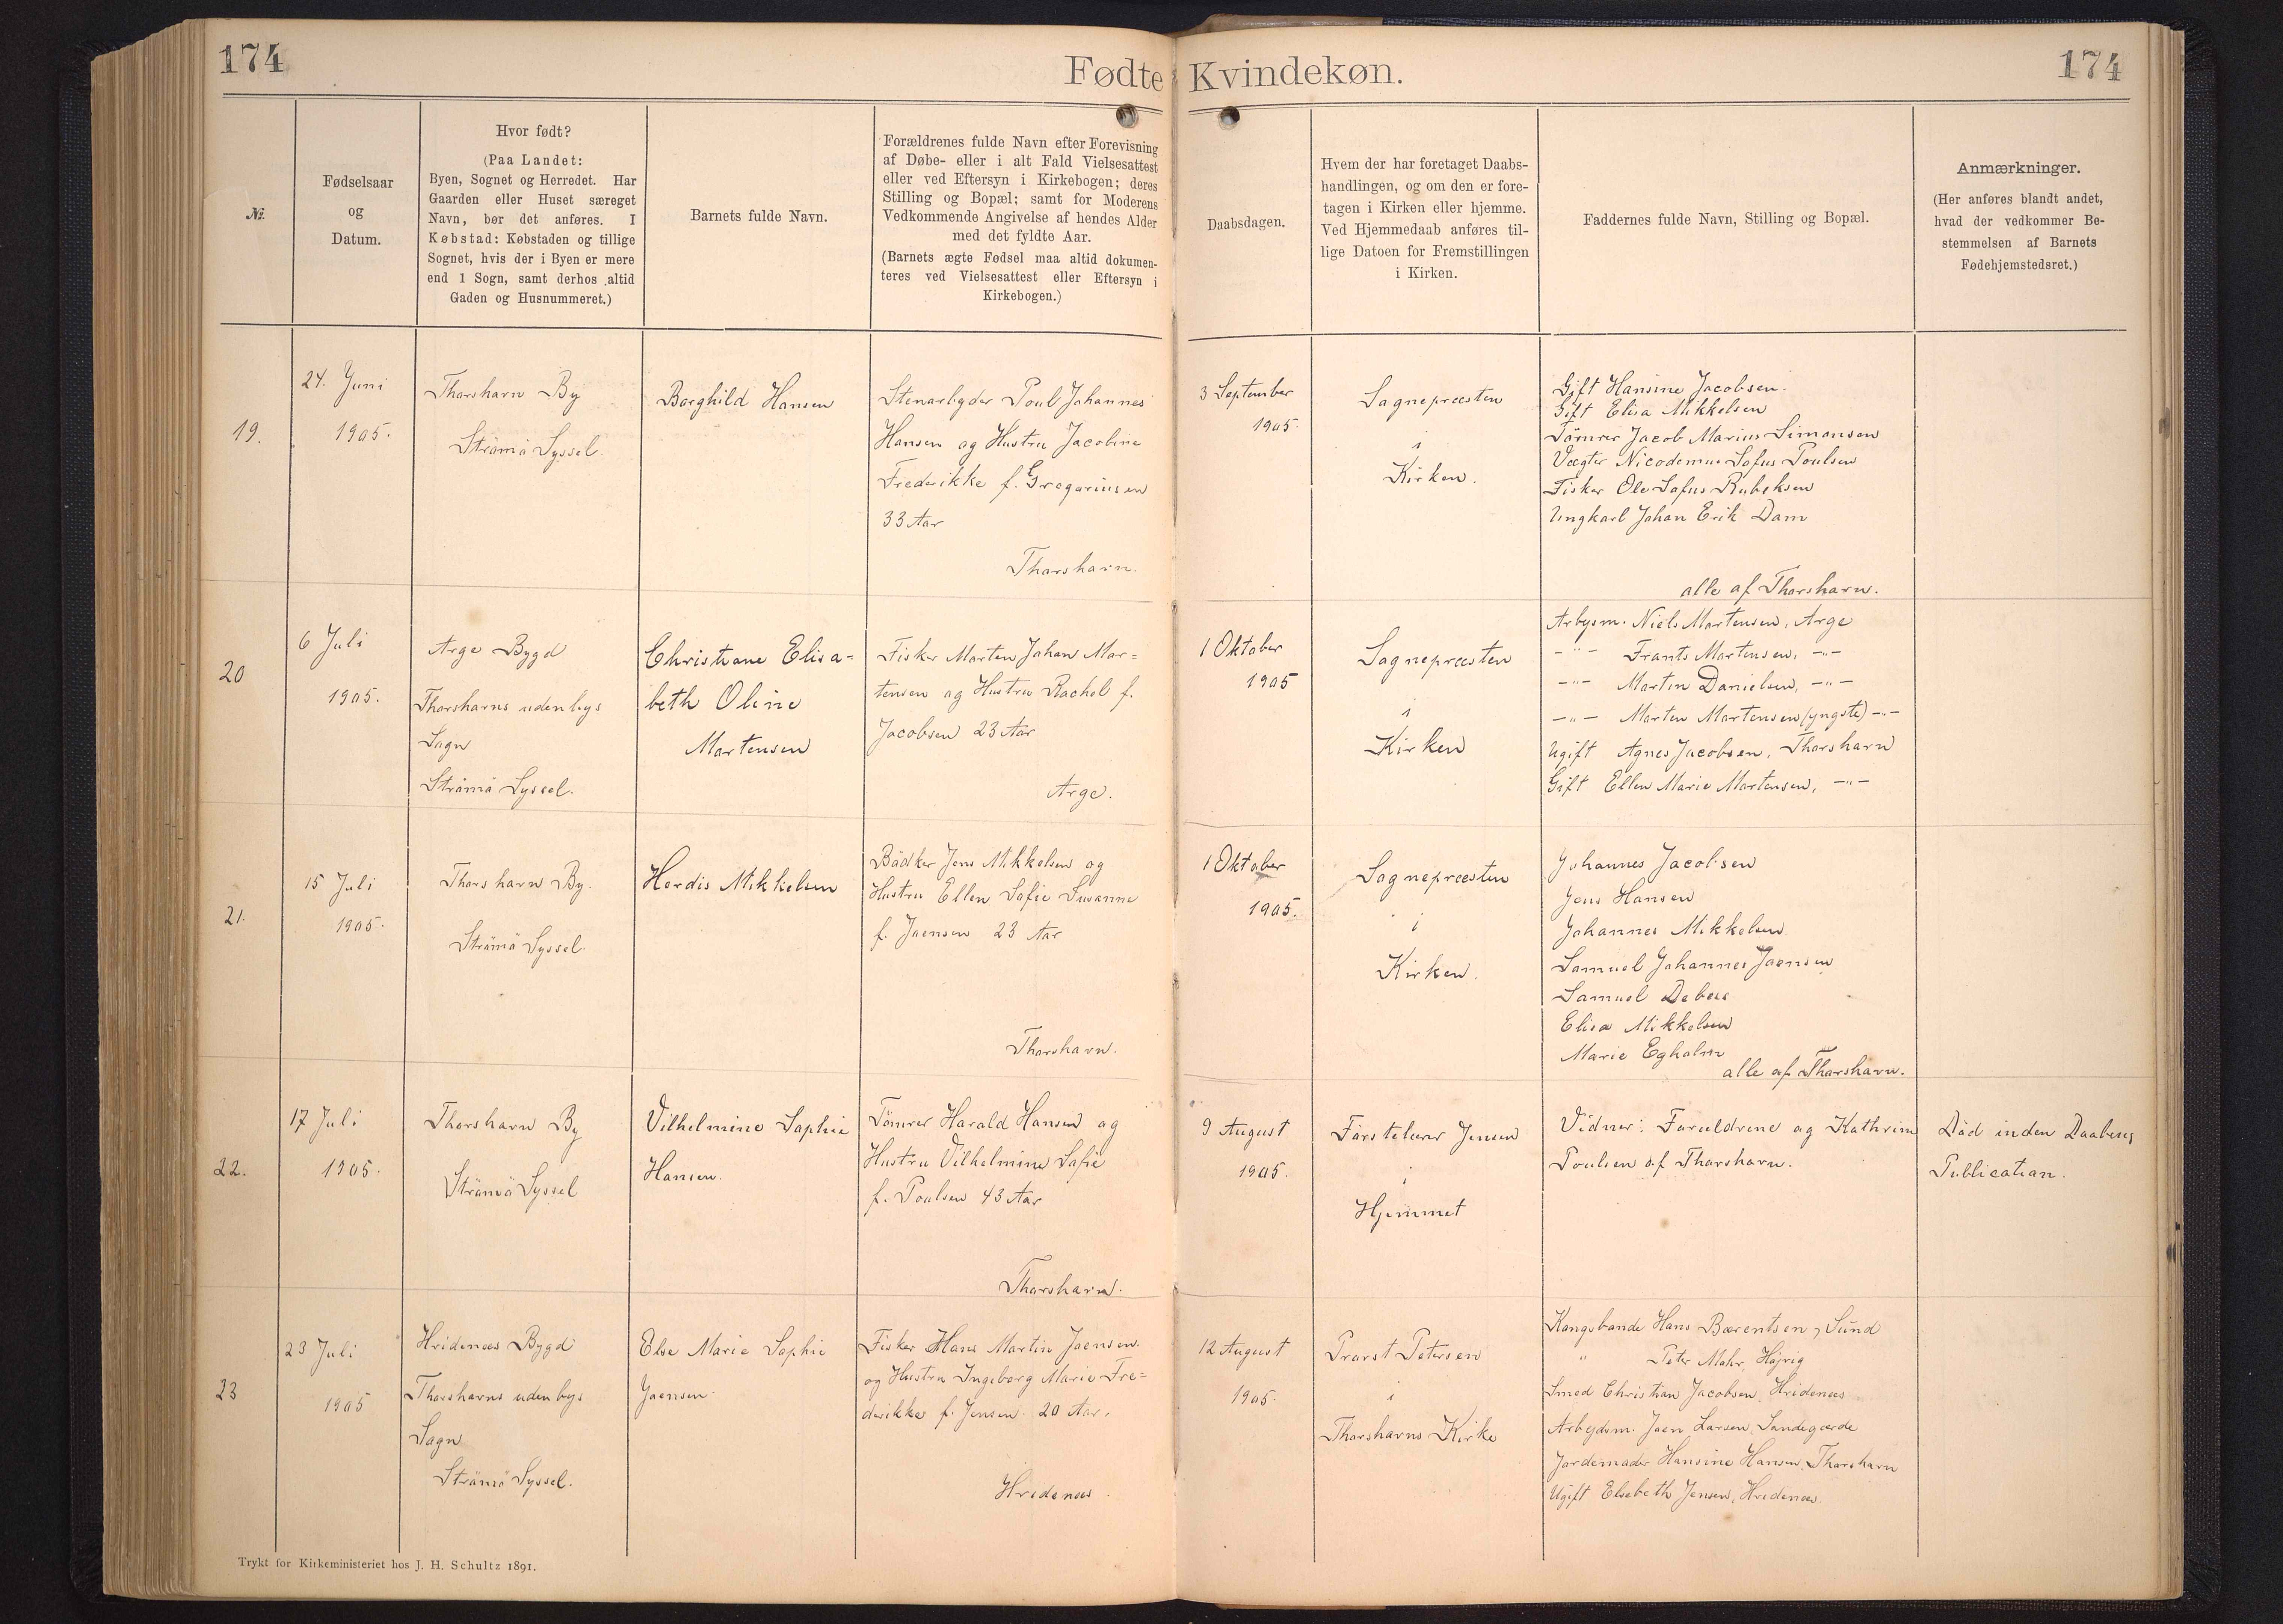 174
Fødte Kvindekøn.
174
№.
Fødselsaar
og
Datum.
Hvor født?
(Paa Landet:
Byen, Sognet og Herredet. Har
Gaarden eller Huset særeget
Navn, bør det anføres. I
Købstad: Købstaden og tillige
Sognet, hvis der i Byen er mere
end 1 Sogn, samt derhos altid
Gaden og Husnummeret.)
Barnets fulde Navn.
Forældrenes fulde Navn efter Forevisning
af Døbe- eller i alt Fald Vielsesattest
eller ved Eftersyn i Kirkebogen; deres
Stilling og Bopæl; samt for Moderens
Vedkommende Angivelse af hendes Alder
med det fyldte Aar.
(Barnets ægte Fødsel maa altid dokumen-
teres ved Vielsesattest eller Eftersyn i
Kirkebogen.)
Daabsdagen.
Hvem der har foretaget Daabs-
handlingen, og om den er fore-
tagen i Kirken eller hjemme.
Ved Hjemmedaab anføres til-
lige Datoen for Fremstillingen
i Kirken.
Faddernes fulde Navn, Stilling og Bopæl.
Anmærkninger.
(Her anføres blandt andet,
hvad der vedkommer Be-
stemmelsen af Barnets
Fødehjemstedsret.)
19.
24. Juni
1905.
Thorshavn By
Strömö Syssel.
Borghild Hansen
Stenarbyder Poul Johannes
Hansen og Hustru Jacobine
Frederikke f. Gregoriusen
33 Aar
Thorshavn.
3 September
1905.
Sognepræsten
i
Kirken.
Gift Hansine Jacobsen.
Gift Elisa Mikkelsen
Tömrer Jacob Marius Simonsen
Vægter Nicodemus Sofus Poulsen
Fisker Ole Sofus Rubeksen
Ungkarl Johan Erik Dam
alle af Thorshavn.
20
6 Juli
1905.
Arge Bygd
Thorshavns udenbys
Sogn
Strömö Syssel.
Christiane Elisa=
beth Oline
Martensen
Fisker Morten Johan Mor=
tensen og Hustru Rachel f.
Jacobsen 23 Aar
Arge.
1 Oktober
1905
Sognepræsten
i
Kirken
Arbysm. Niels Mortensen, Arge
-"- Frants Mortensen, -"-
-"- Martin Danielsen, -"-
-"- Morten Mortensen (yngste) -"-
Ugift Agnes Jacobsen, Thorshavn
Gift Ellen Marie Mortensen, -"-
21.
15 Juli
1905.
Thorshavn By.
Strömö Syssel.
Herdis Mikkelsen
Bödker Jens Mikkelsen og
Hustru Ellen Sofie Susanne
f. Joensen 23 Aar
Thorshavn.
1 Oktober
1905.
Sognepræsten
i
Kirken.
Johannes Jacobsen
Jens Hansen
Johannes Mikkelsen
Samuel Johannes Joensen
Samuel Debess
Elisa Mikkelsen
Marie Egholm
alle af Thorshavn.
22.
17 Juli
1905.
Thorshavn By
Strömö Syssel
Vilhelmine Sophie
Hansen.
Tömrer Harald Hansen og
Hustru Vilhelmine Sofie
f. Poulsen 43 Aar
Thorshavn.
9 August
1905.
Förstelærer Jensen
i
Hjemmet
Vidner: Forældrene og Kathrine
Poulsen af Thorshavn.
Död inden Daabens
Publication.
23
23 Juli
1905
Hvidenæs Bygd
Thorshavns udenbys
Sogn
Strömö Syssel.
Else Marie Sophie
Joensen.
Fisker Hans Martin Joensen.
og Hustru Ingeborg Marie Fre=
derikke f. Jensen. 20 Aar.
Hvidenæs.
12 August
1905.
Provst Petersen
i
Thorshavns Kirke
Kongsbonde Hans Bærentsen, Sund
" Peter Mohr, Höjvig
Smed Christian Jacobsen, Hvidenæs
Arbejdsm. Joen Larsen, Sandegærde
Jordemoder Hansine Hansen, Thorshavn
Ugift Elsebeth Jensen, Hvidenæs.
Trykt for Kirkeministeriet hos J. H. Schultz 1891.